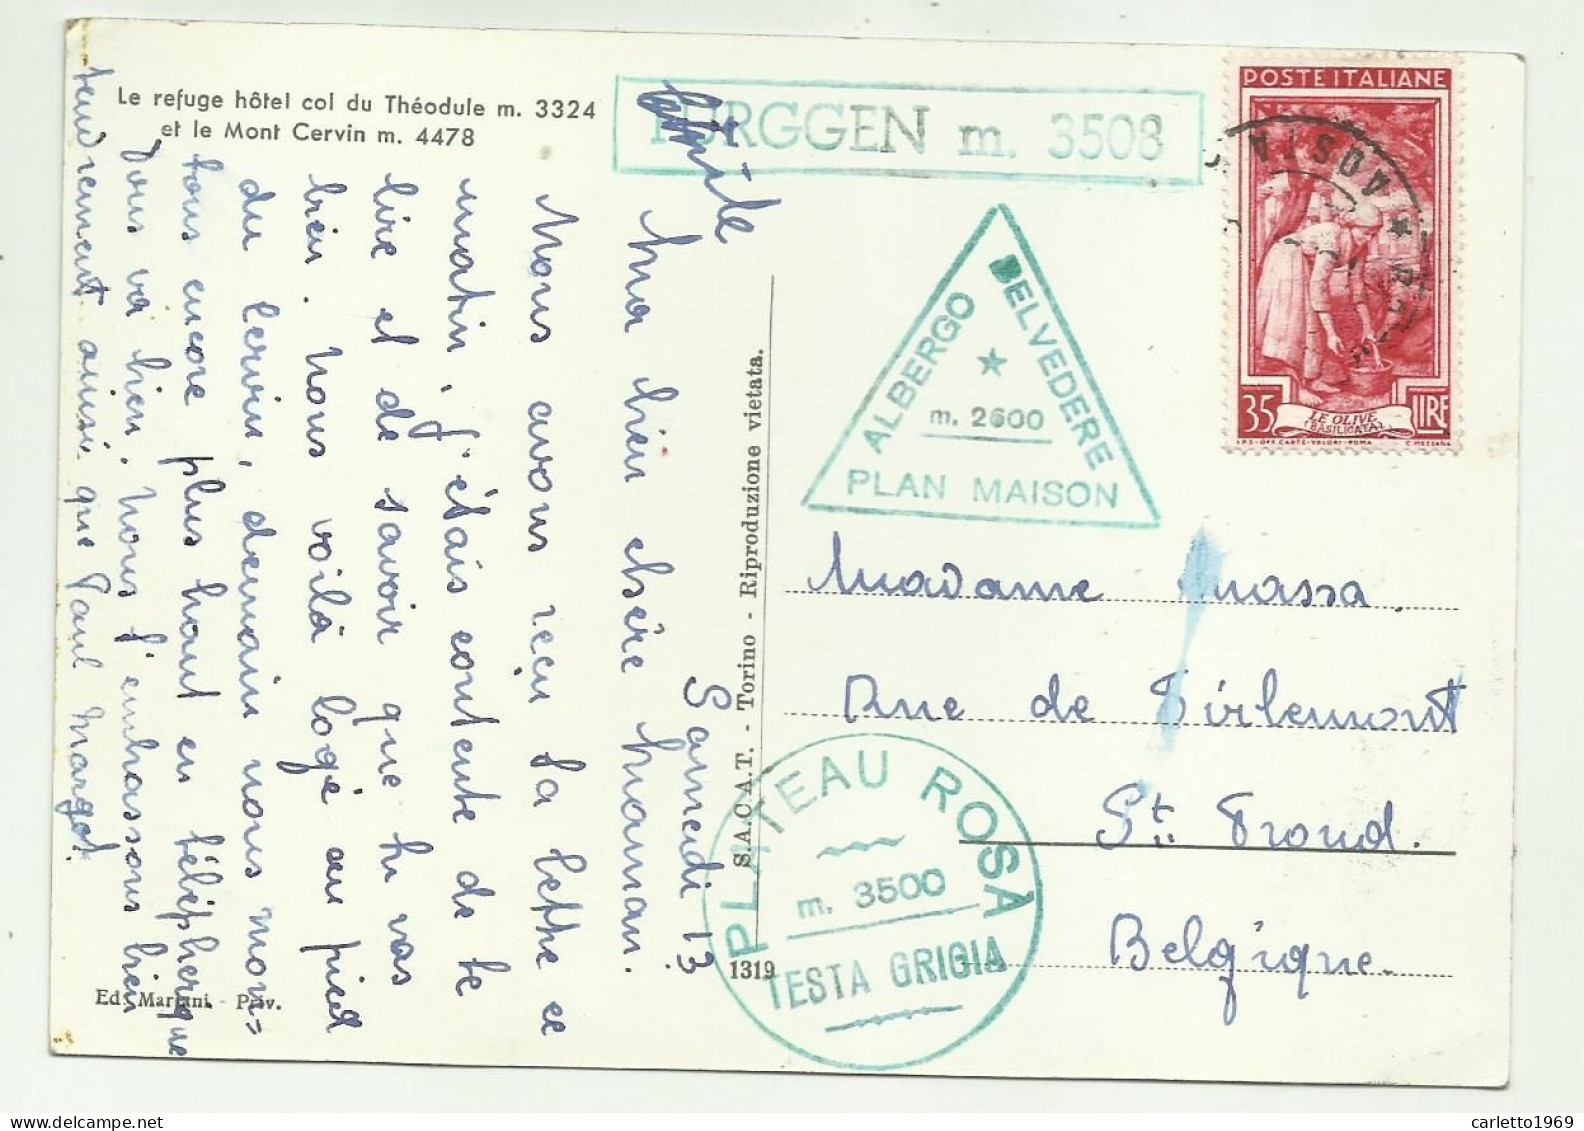 Le refuge hôtel col du Théodule m. 3324
et le Mont Cervin m. 4478
FURGGEN m. 3508
POSTE ITALIANE
35 LIRE
LE OLIVE
(BASILICATA)
I.P.S.-OFF. CARTE-VALORI-ROMA
C. MEZZANA
AOSTA
ALBERGO BELVEDERE
m. 2600
PLAN MAISON
PLATEAU ROSA
m. 3500
TESTA GRIGIA
S.A.C.A.T. - Torino - Riproduzione vietata.
1319
Ed. Mariani - Priv.
Samedi 13
Ma bien chère Maman.
Nous avons reçu ta lettre ce
matin, j'étais contente de te
lire et de savoir que tu vas
bien. Nous voilà logé au pied
du Cervin, demain nous mon=
tons encore plus haut en téléphérique
Tous va bien. Nous t'embrassons bien
tendrement ainsi que Paul Margot.
Madame Massa.
Rue de Tirlemont
St. Trond.
Belgique.
carletto1969